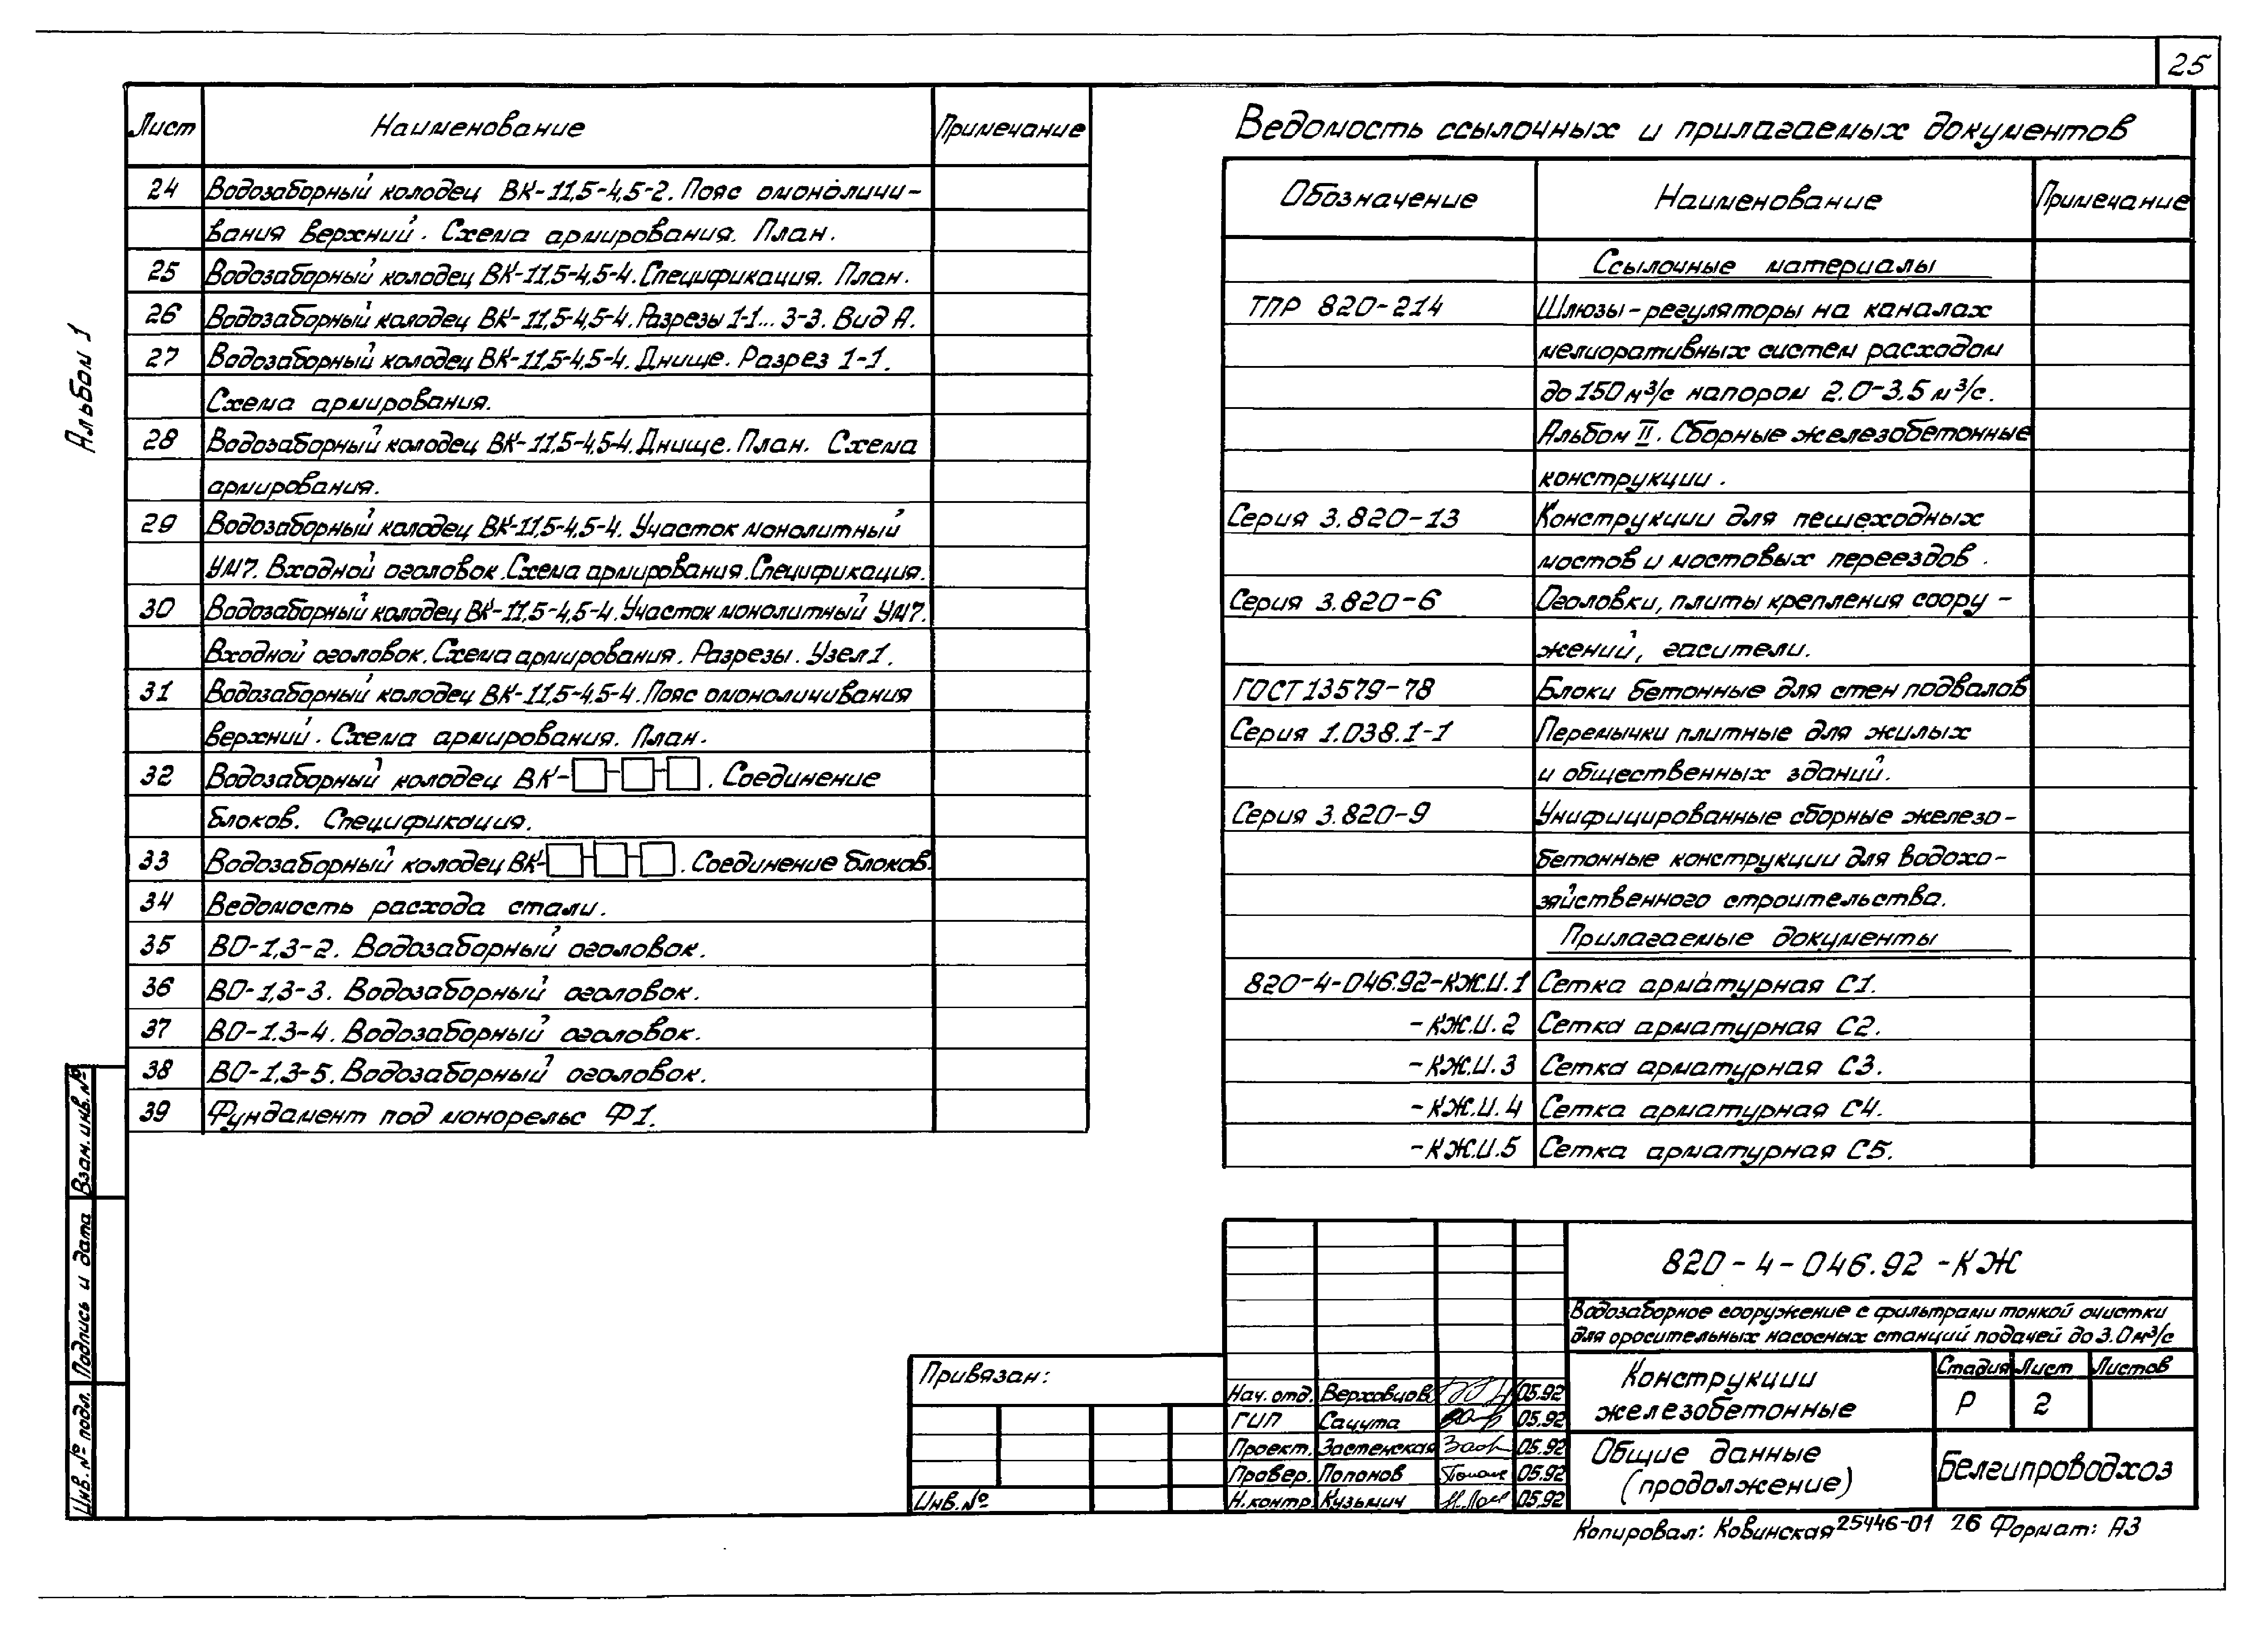 25
Альбом 1
Лист Наименование Примечание
24 Водозаборный колодец ВК-11,5-4,5-2. Пояс омоноличи-
вания верхний. Схема армирования. План.
25 Водозаборный колодец ВК-11,5-4,5-4. Спецификация. План.
26 Водозаборный колодец ВК-11,5-4,5-4. Разрезы 1-1... 3-3. Вид А.
27 Водозаборный колодец ВК-11,5-4,5-4. Днище. Разрез 1-1.
Схема армирования.
28 Водозаборный колодец ВК-11,5-4,5-4. Днище. План. Схема
армирования.
29 Водозаборный колодец ВК-11,5-4,5-4. Участок монолитный
УМ7. Входной оголовок. Схема армирования. Спецификация.
30 Водозаборный колодец ВК-11,5-4,5-4. Участок монолитный УМ7.
Входной оголовок. Схема армирования. Разрезы. Узел 1.
31 Водозаборный колодец ВК-11,5-4,5-4. Пояс омоноличивания
верхний. Схема армирования. План.
32 Водозаборный колодец ВК-□-□-□. Соединение
блоков. Спецификация.
33 Водозаборный колодец ВК-□-□-□. Соединение блоков.
34 Ведомость расхода стали.
35 ВО-1,3-2. Водозаборный оголовок.
36 ВО-1,3-3. Водозаборный оголовок.
37 ВО-1.3-4. Водозаборный оголовок.
38 ВО-1,3-5. Водозаборный оголовок.
39 Фундамент под монорельс Ф1.
Ведомость ссылочных и прилагаемых документов
Обозначение Наименование Примечание
Ссылочные материалы
ТПР 820-214 Шлюзы-регуляторы на каналах
мелиоративных систем расходом
до 150 м³/с напором 2.0-3.5 м³/с.
Альбом II. Сборные железобетонные
конструкции.
Серия 3.820-13 Конструкции для пешеходных
мостов и мостовых переездов.
Серия 3.820-6 Оголовки, плиты крепления соору-
жений, гасители.
ГОСТ 13579-78 Блоки бетонные для стен подвалов
Серия 1.038.1-1 Перемычки плитные для жилых
и общественных зданий.
Серия 3.820-9 Унифицированные сборные железо-
бетонные конструкции для водохо-
зяйственного строительства.
Прилагаемые документы
820-4-046.92-КЖ.И.1 Сетка арматурная С1.
-КЖ.И.2 Сетка арматурная С2.
-КЖ.И.3 Сетка арматурная С3.
-КЖ.И.4 Сетка арматурная С4.
-КЖ.И.5 Сетка арматурная С5.
Взам. инв. №
Подпись и дата
Инв. № подл.
Привязан:
Инв. №
820-4-046.92-КЖ
Водозаборное сооружение с фильтрами тонкой очистки
для оросительных насосных станций подачей до 3.0 м³/с
Нач. отд. Верховцов 05.92
ГИП Сацута 05.92
Проект. Застенская 05.92
Провер. Попонов 05.92
Н. контр. Кузьмич 05.92
Конструкции
железобетонные
Стадия Лист Листов
Р 2
Общие данные
(продолжение)
Белгипроводхоз
Копировал: Ковинская 25446-01 26 Формат: А3